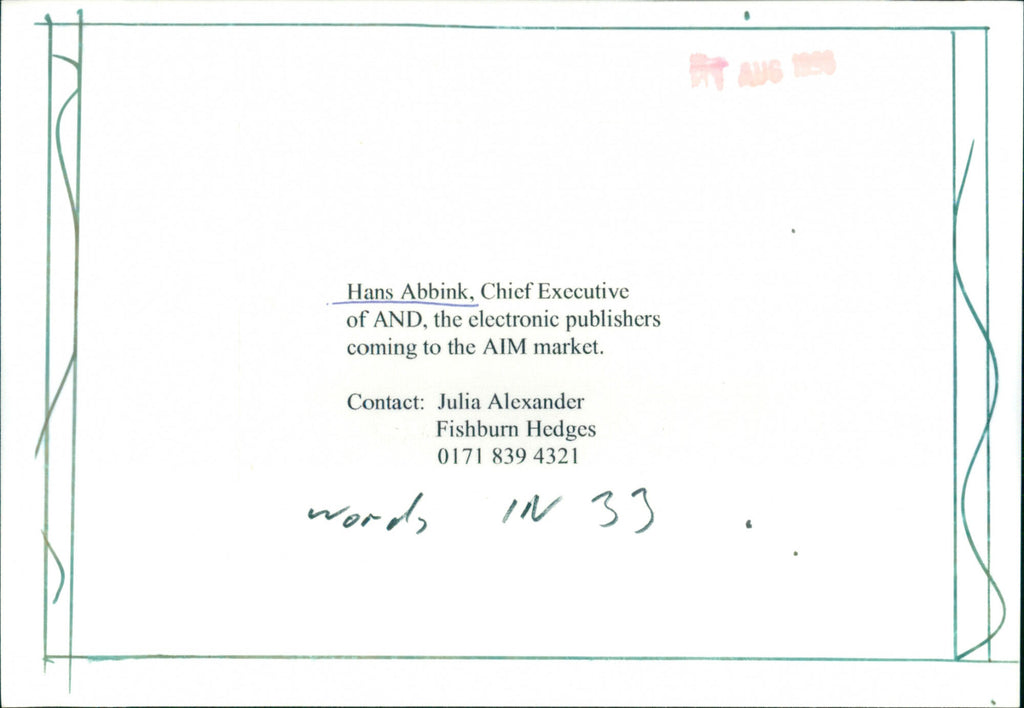 AUG
Hans Abbink, Chief Executive
of AND, the electronic publishers
coming to the AIM market.
Contact: Julia Alexander
Fishburn Hedges
0171 839 4321
words IN 33